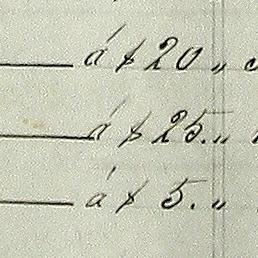 á $ 20 „
á $ 25. „
á $ 5. „